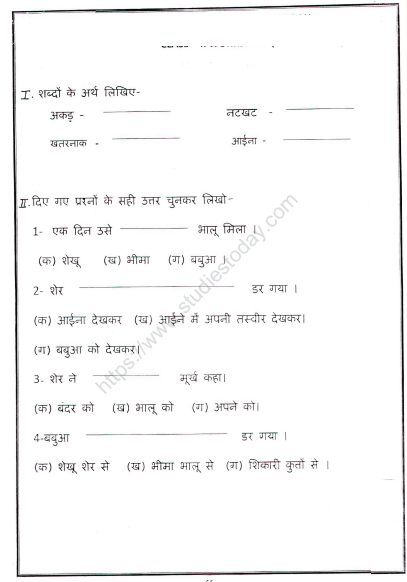 I. शब्दों के अर्थ लिखिए-
अकड़ - नटखट -
खतरनाक - आईना -
II.दिए गए प्रश्नों के सही उत्तर चुनकर लिखो-
1- एक दिन उसे भालू मिला ।
(क) शेखू (ख) भीमा (ग) बबुआ ।
2- शेर डर गया ।
(क) आईना देखकर (ख) आईने में अपनी तस्वीर देखकर।
(ग) बबुआ को देखकर।
3- शेर ने मूर्ख कहा।
(क) बंदर को (ख) भालू को (ग) अपने को।
4-बबुआ डर गया ।
(क) शेखू शेर से (ख) भीमा भालू से (ग) शिकारी कुत्तों से ।
https://www.studiestoday.com